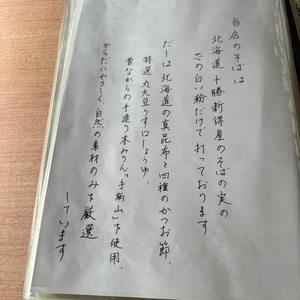 当店のそばは
北海道十勝新得産のそばの実の
芯の白い粉だけで打っております
だしは北海道の真昆布と四種のかつお節、
特選丸大豆うす口しょうゆ、
昔ながらの手造り本みりん「手柄山」を使用、
からだにやさしく自然の素材のみを厳選
しています